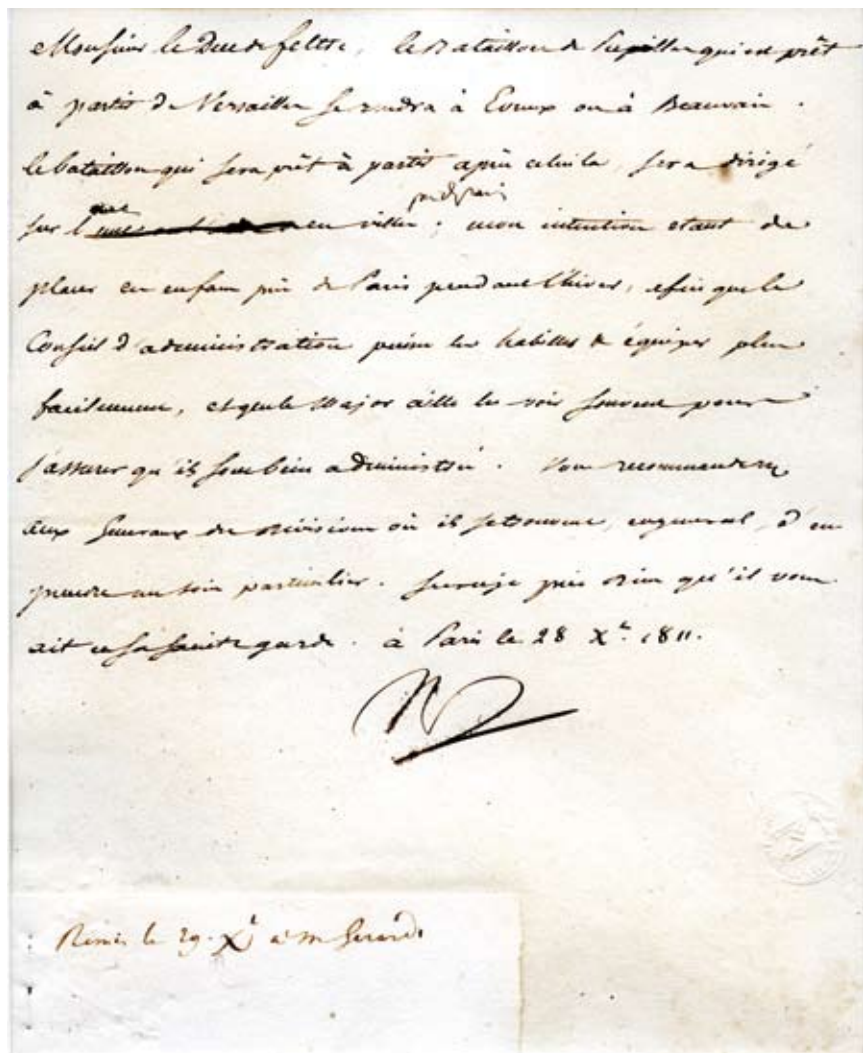 Monsieur le Duc de feltre, le Bataillon de Pupilles qui est prêt
à partir de Versailles se rendra à Evreux ou à Beauvais.
le bataillon qui sera prêt à partir après celui la, sera dirigé
sur l'une ces villes; mon intention etant de
placer ces enfans près de Paris pendant l'hiver, afin que le
Conseil d'administration puisse les habiller & équiper plus
facilement, et que le Major aille les voir souvent pour
s'assurer qu'ils sont bien administrés. Vous recommanderez
aux Generaux des divisions où ils se trouvent, en general, d'en
prendre un soin particulier. Sur ce je prie Dieu qu'il vous
ait en sa sainte garde. à Paris le 28 Xbre 1811.
N
Remis le 29. Xbre à M Gerard